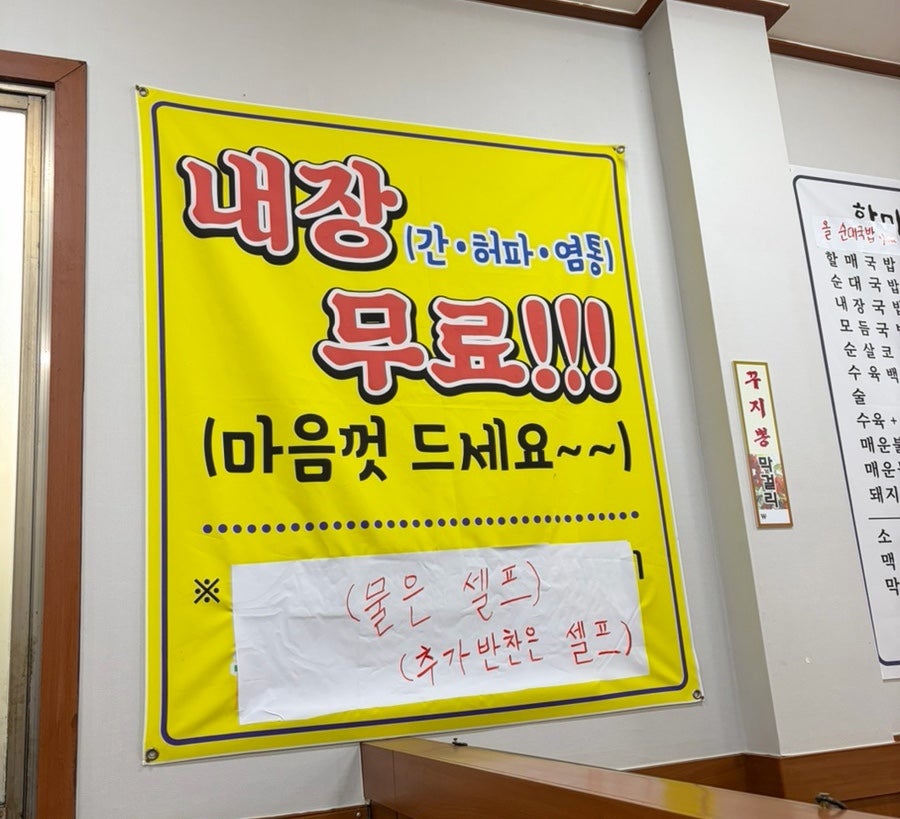 내장
(간•허파•염통)
무료!!!
(마음껏 드세요~~)
※
(물은 셀프)
(추가반찬은 셀프)
꾸지뽕
막걸리
₩
할매국밥
순대국밥
내장국밥
모듬국
순살코
수육백
술
수육+
매운불
매운
돼지
소
맥
막